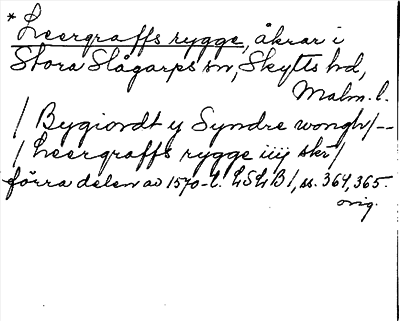 * Leergraffs rygge, åkrar i
Stora Slågarps sn, Skytts hd,
Malm. l.
/ Bygiordt y Syndre wongh/--
/ Leergraffs rygge iiij skr/
förra delen av 1570-t. LSLB1, ss. 364, 365.
orig.